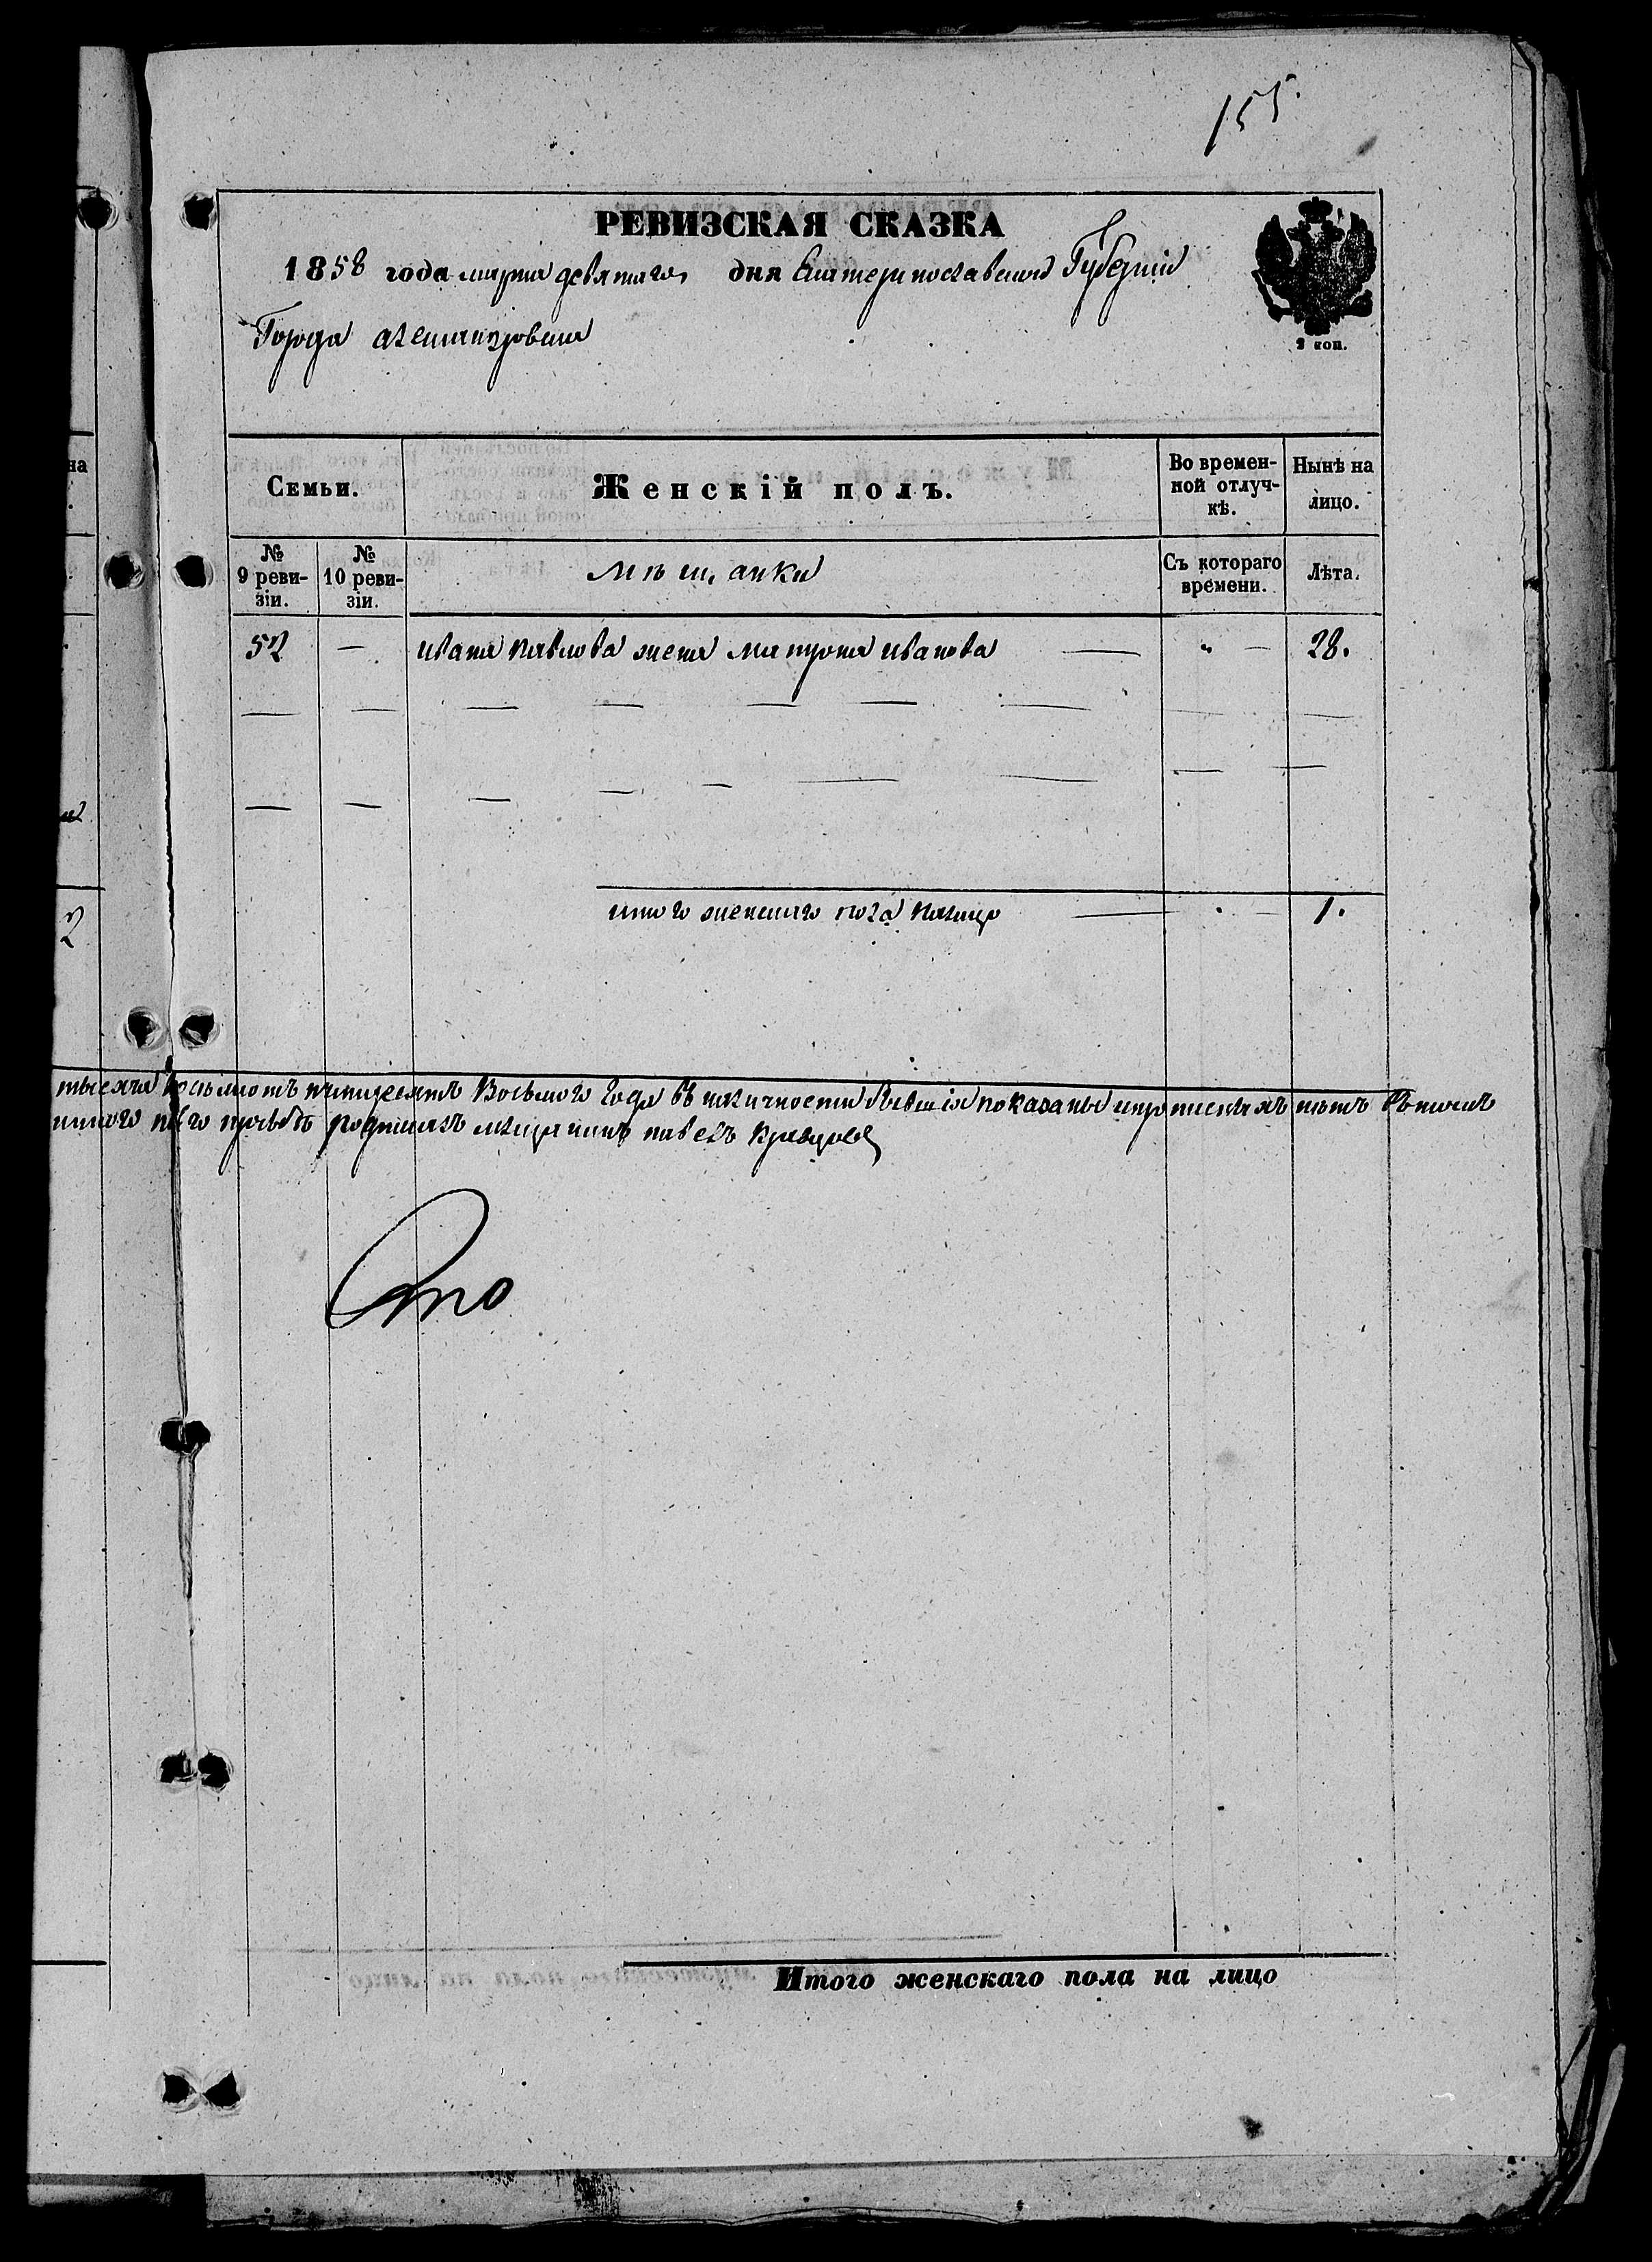 155.
РЕВИЗСКАЯ СКАЗКА
1858 года марта девятаго дня Екатеринославской Губерніи
Города александровска
2 коп.
на
Семьи.
Женскій полъ.
Во времен-
ной отлуч-
кѣ.
Нынѣ на
лицо.
№
9 реви-
зіи.
№
10 реви-
зіи.
мѣщанки
Съ котораго
времени.
Лѣта.
52 — ивана павлова жена матрона иванова — " — 28.
итого женскаго пола налицо — . — 1.
2
тысяча восьмотъ пятидесятъ Восьмого Года въ наличности Ревизіи показаны и прописныхъ нѣтъ
его прозьбѣ подписалъ мещанинъ павелъ кравцовъ
Сто
Итого женскаго пола на лицо